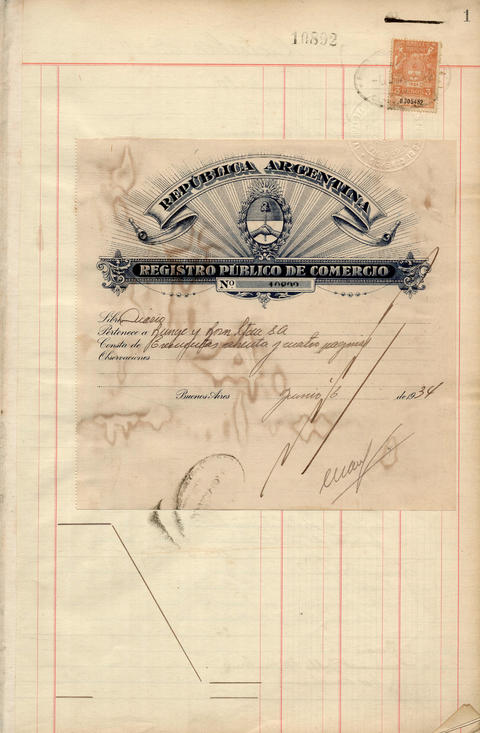 1
10892
5 PESOS 5
0.705482
REPÚBLICA ARGENTINA
REGISTRO PÚBLICO DE COMERCIO
Nº 10892
Libro Diario
Pertenece a Bunge y Born Ltda S.A
Consta de y cuatro paginas
Observaciones
Buenos Aires Junio 6 de 1934